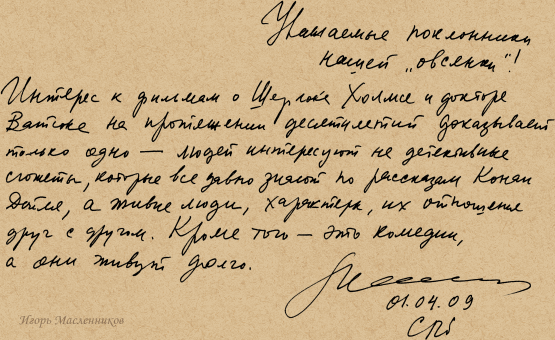 Уважаемые поклонники
нашей „овсянки"!
Интерес к фильмам о Шерлоке Холмсе и докторе
Ватсоне на протяжении десятилетий доказывает
только одно — людей интересуют не детективные
сюжеты, которые все давно знают по рассказам Конан
Дойля, а живые люди, характеры, их отношения
друг с другом. Кроме того — это комедии,
а они живут долго.
01.04.09
СПб
Игорь Масленников